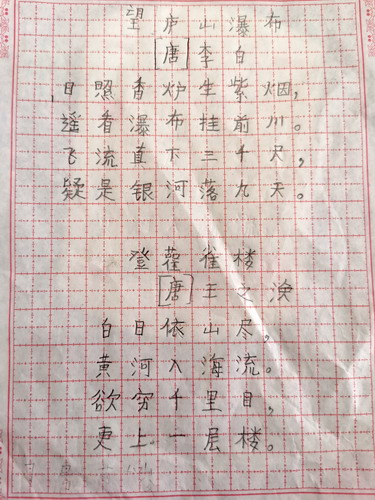 望庐山瀑布
[唐]李白
日照香炉生紫烟,
遥看瀑布挂前川。
飞流直下三千尺,
疑是银河落九天。
登雚雀楼
[唐]王之涣
白日依山尽,
黄河入海流。
欲穷千里目,
更上一层楼。